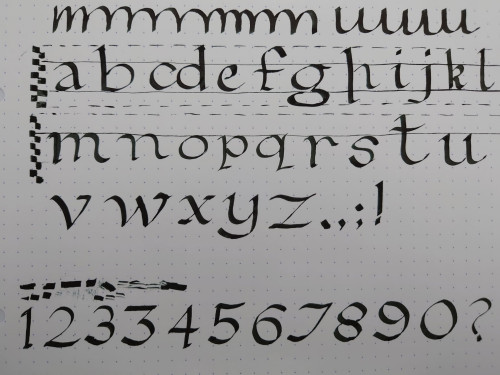 mmmmmm uuuu
a b c d e f g h i j k l
m n o p q r s t u
v w x y z . , ; !
1 2 3 3 4 5 6 7 8 9 0 ?